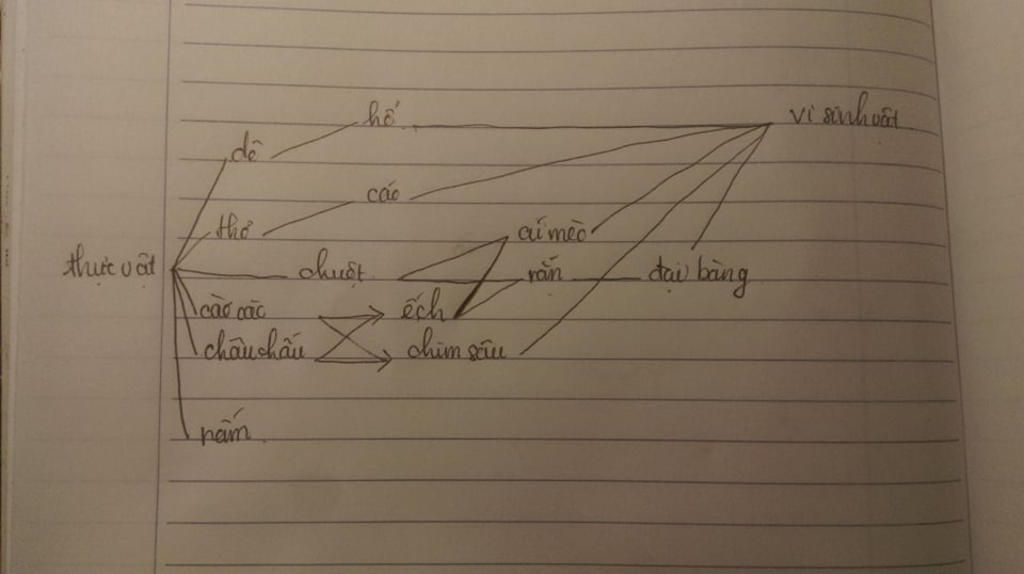 hổ
vi sinh vật
dê
cáo
thỏ
cú mèo
thực vật
chuột
rắn
đại bàng
cào cào
ếch
châu chấu
chim sâu
nấm